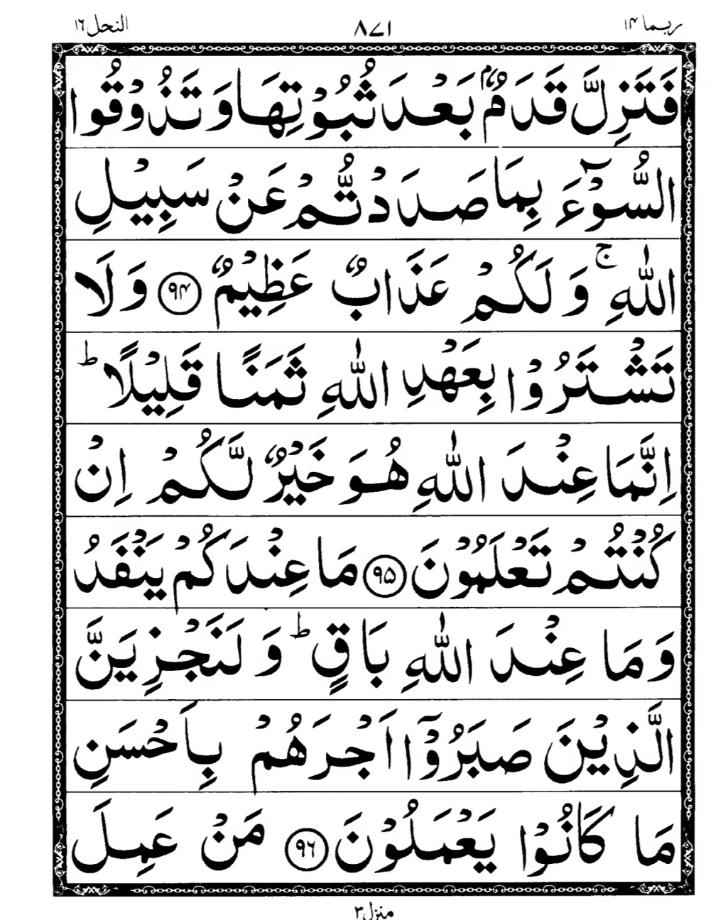 ربما ۱۴ ۸۷۱ النحل ۱۶
فَتَزِلَّ قَدَمٌۢ بَعْدَ ثُبُوْتِهَا وَ تَذُوْقُوا
السُّوْٓءَ بِمَا صَدَدْتُّمْ عَنْ سَبِيْلِ
اللّٰهِ ۚ وَ لَكُمْ عَذَابٌ عَظِيْمٌ ﴿۹۴﴾ وَ لَا
تَشْتَرُوْا بِعَهْدِ اللّٰهِ ثَمَنًا قَلِيْلًا ؕ
اِنَّمَا عِنْدَ اللّٰهِ هُوَ خَيْرٌ لَّكُمْ اِنْ
كُنْتُمْ تَعْلَمُوْنَ ﴿۹۵﴾ مَا عِنْدَكُمْ يَنْفَدُ
وَ مَا عِنْدَ اللّٰهِ بَاقٍ ؕ وَ لَنَجْزِيَنَّ
الَّذِيْنَ صَبَرُوْٓا اَجْرَهُمْ بِاَحْسَنِ
مَا كَانُوْا يَعْمَلُوْنَ ﴿۹۶﴾ مَنْ عَمِلَ
منزل ۳